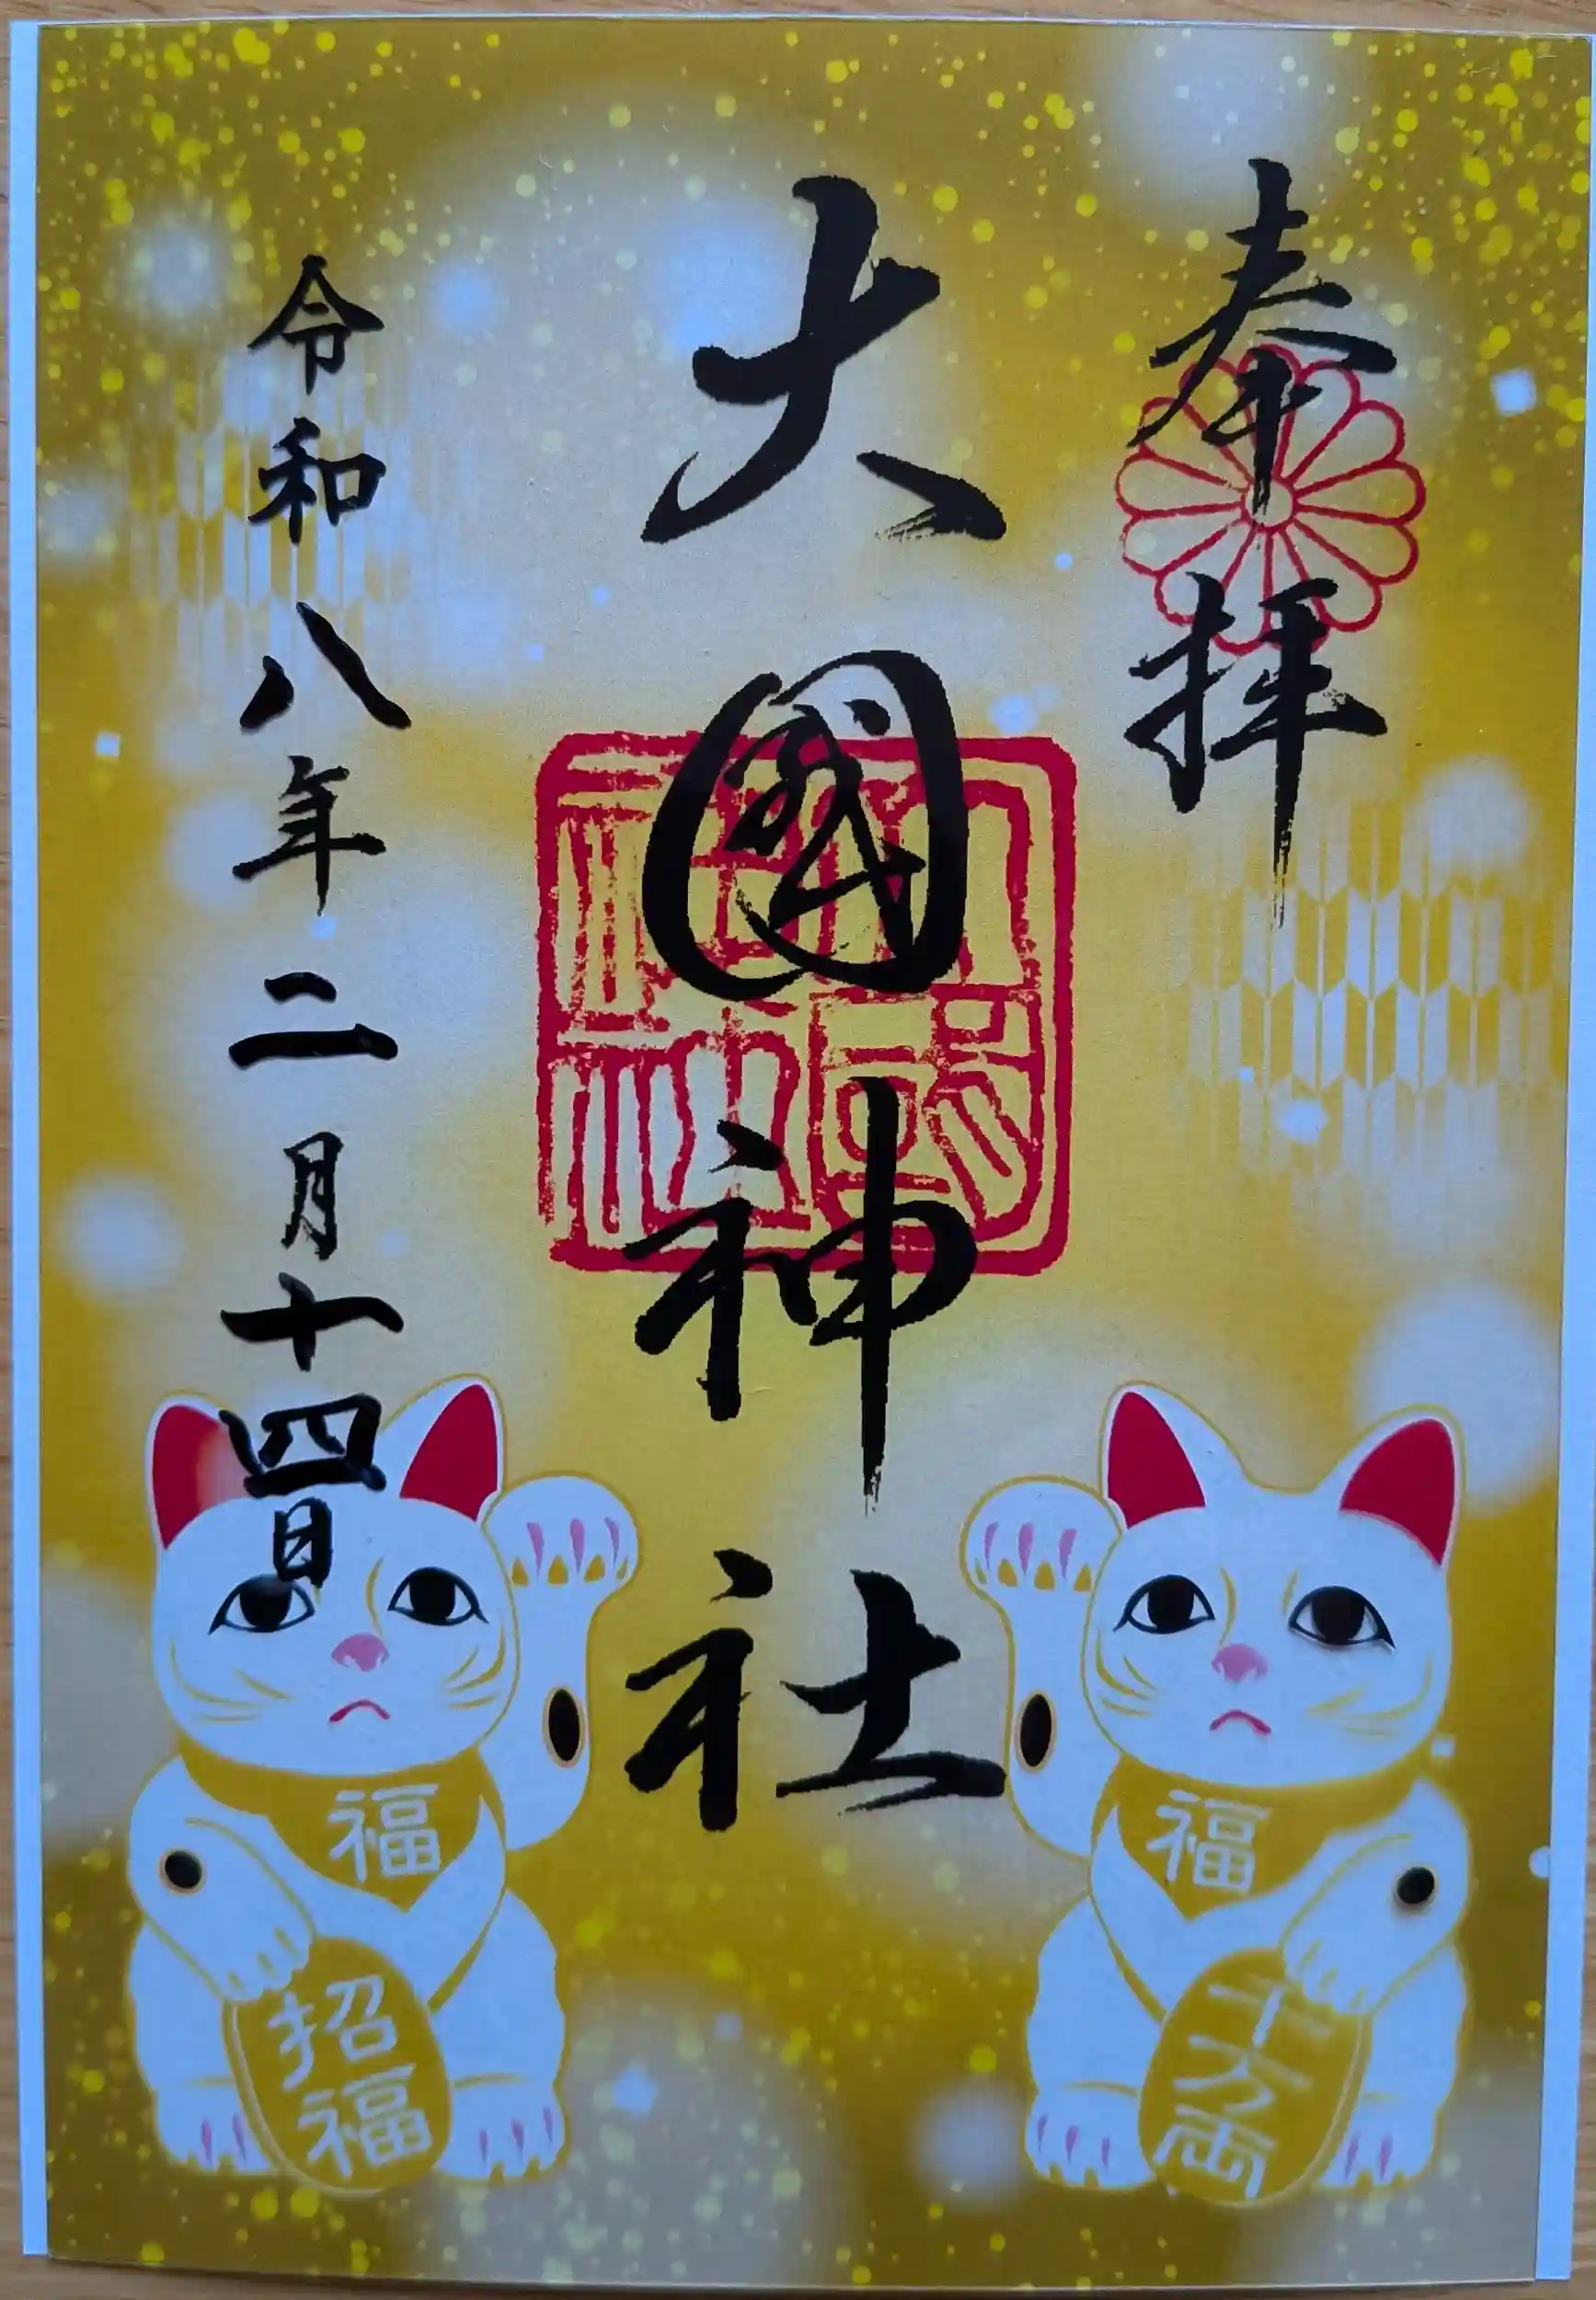 奉拝
大國神社
令和八年二月十四日
福
招福
福
千万両